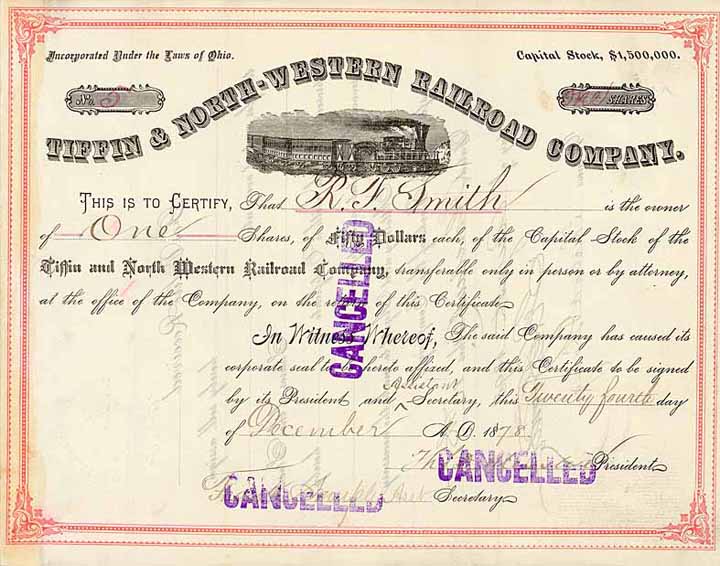 Incorporated Under the Laws of Ohio.
Capital Stock, $1,500,000.
No. 5
SHARES
TIFFIN & NORTH-WESTERN RAILROAD COMPANY.
THIS IS TO CERTIFY, That R. F. Smith is the owner
of One Shares, of Fifty Dollars each, of the Capital Stock of the
Tiffin and North Western Railroad Company, transferable only in person or by attorney,
at the office of the Company, on the return of this Certificate
In Witness Whereof, The said Company has caused its
corporate seal to be hereto affixed, and this Certificate to be signed
Assistant
by its President and Secretary, this Twenty fourth day
of December A.D. 1878.
President
Secretary
CANCELLED
CANCELLED
CANCELLED